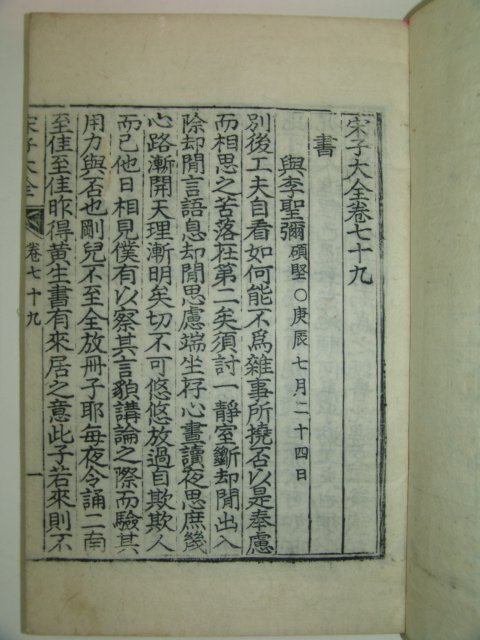 宋子大全卷七十九
書
與李聖彌碩堅〇庚辰七月二十四日
別後工夫自看如何能不爲雜事所撓否以是奉慮
而相思之苦落在第二矣須討一靜室斷却閒出入
除却閒言語息却閒思慮端坐存心晝讀夜思庶幾
心路漸開天理漸明矣切不可悠悠放過自欺欺人
而已他日相見僕有以察其言貌講論之際而驗其
用力與否也剛兒不至全放冊子耶每夜令誦二南
至佳至佳昨得黃生書有來居之意此子若來則不
宋子大全
卷七十九
一